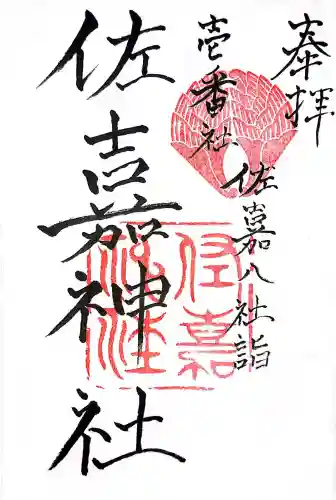 奉拝
壱番社 佐嘉八社詣
佐嘉神社
佐嘉
神社